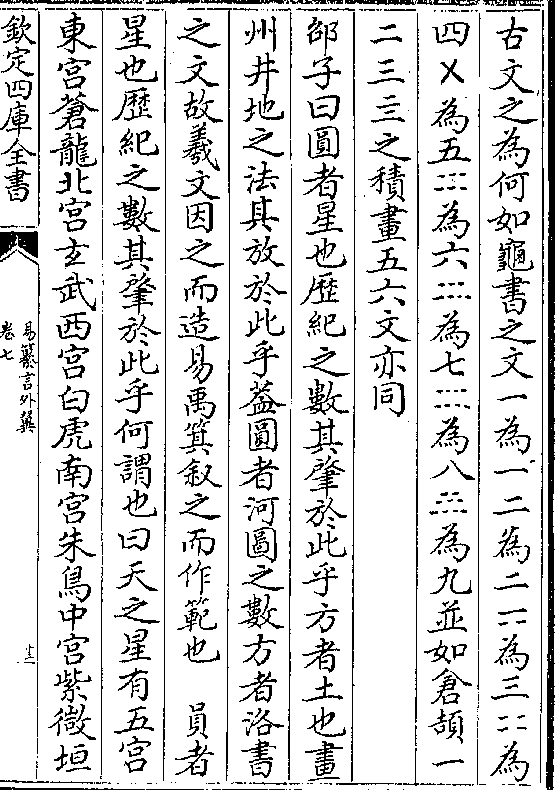 古文之為何如龜書之文一為一二為二⚋為三∷為
四㐅為五𝌆為六為七為八為九並如倉頡一
二三亖之積畫五六文亦同
邵子曰圓者星也歷紀之數其肇於此乎方者土也畫
州井地之法其放於此乎葢圓者河圖之數方者洛書
之文故羲文因之而造易禹箕叙之而作範也　員者
星也歷紀之數其肇於此乎何謂也曰天之星有五宮
東宮蒼龍北宮玄武西宮白虎南宮朱鳥中宮紫微垣
欽定四庫全書
易纂言外翼
卷七
十三